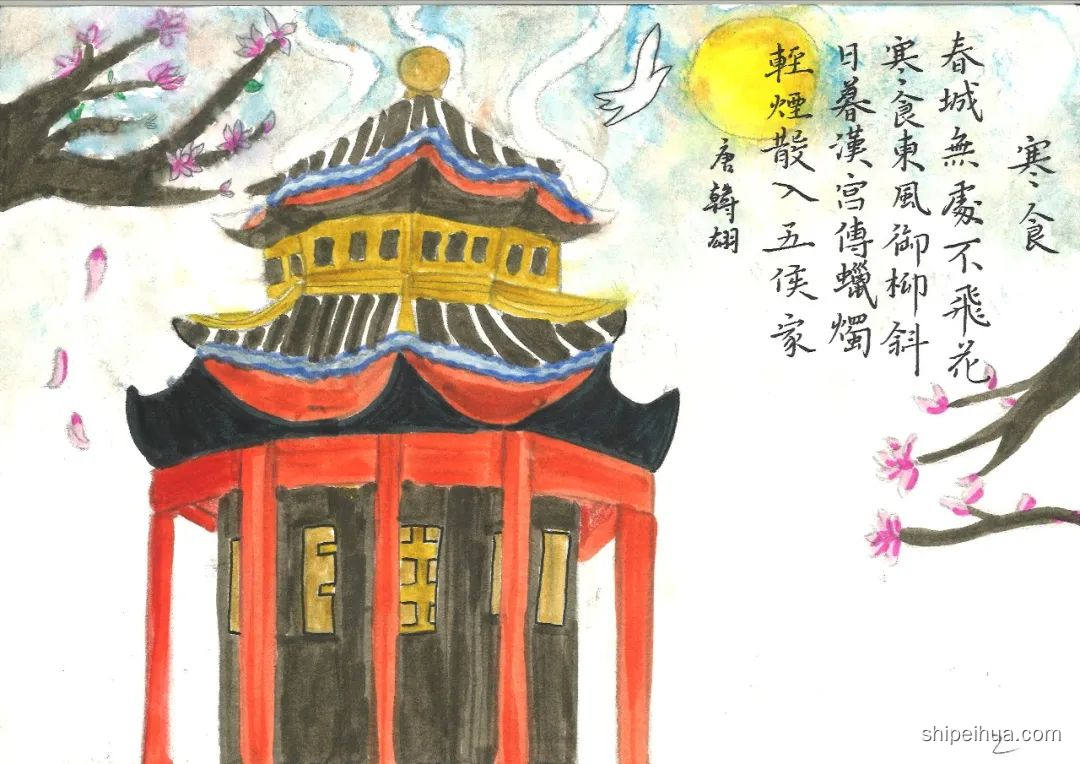 寒食
春城無處不飛花
寒食東風御柳斜
日暮漢宮傳蠟燭
輕煙散入五侯家
唐 韓翃
shipeihua.com